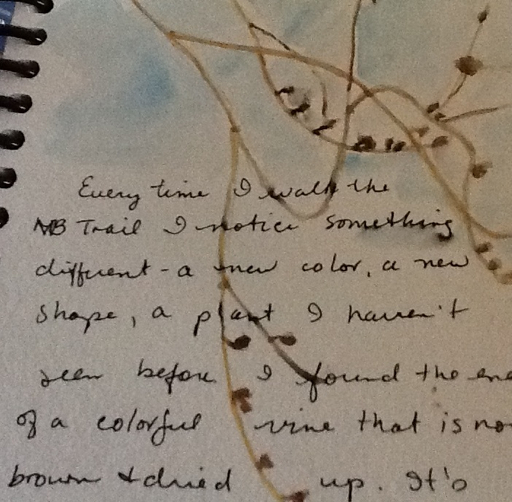 Every time I walk the
MB Trail I notice something
different - a new color, a new
shape, a plant I haven't
seen before I found the
of a colorful vine that is
brown & dried up. It's